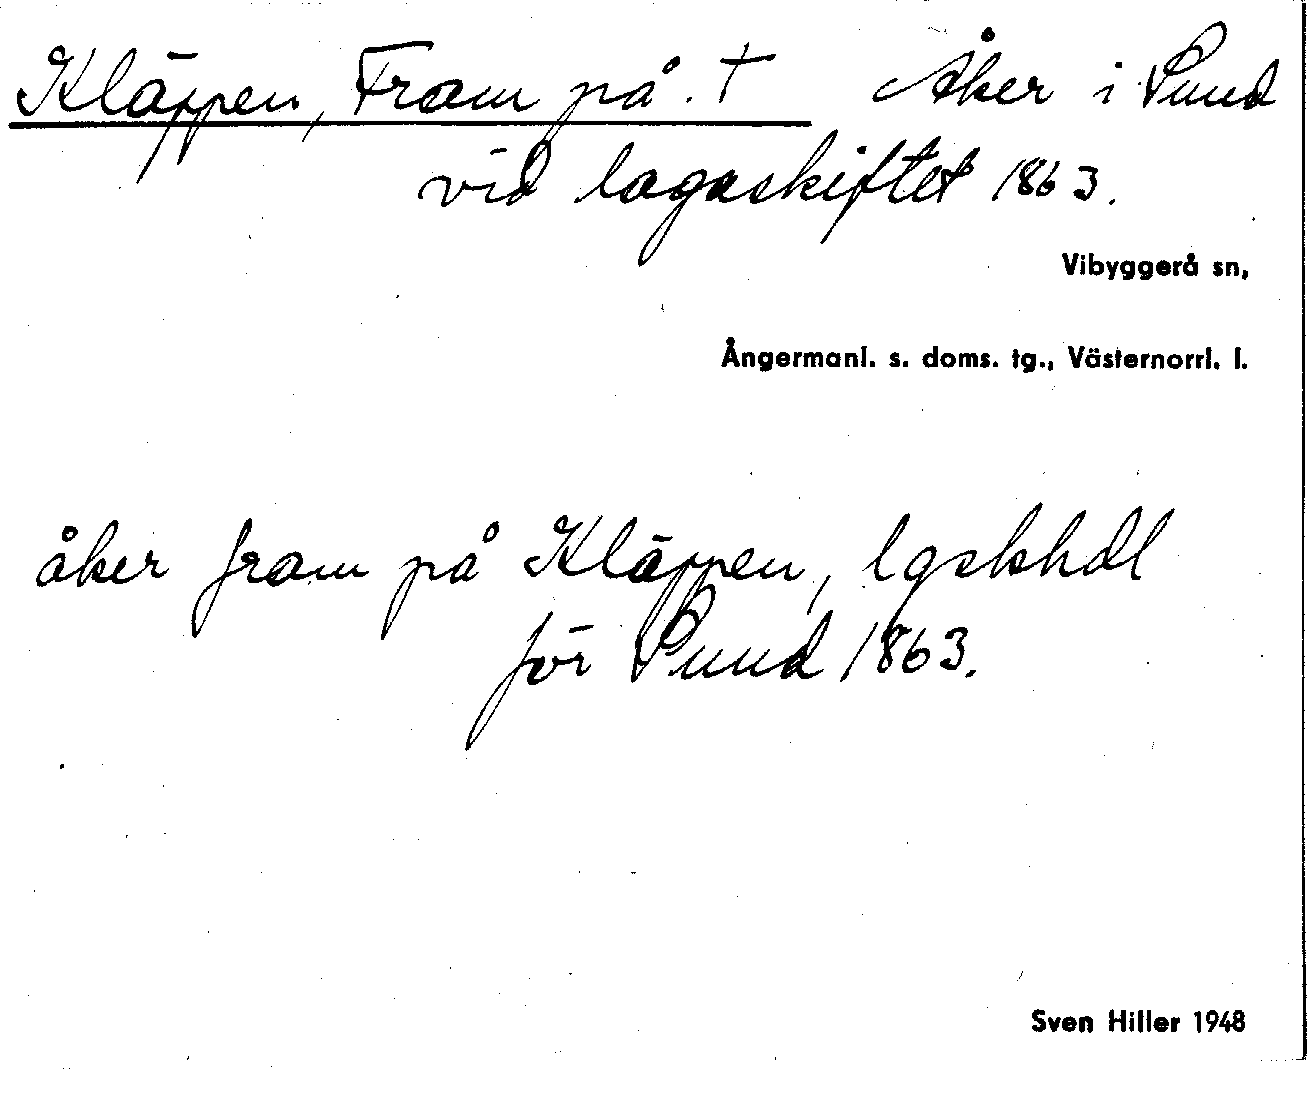 Kläppen, Fram på. † Åker i Sund
vid lagaskiftet 1863.
Vibyggerå sn,
Ångermanl. s. doms. tg., Västernorrl. l.
åker fram på Kläppen, lgskhdl
för Sund 1863.
Sven Hiller 1948